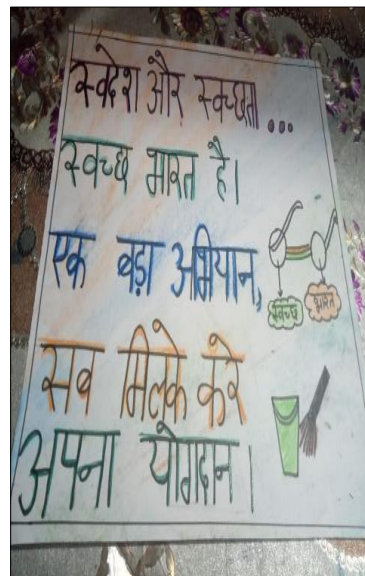 स्वदेश और स्वच्छता ...
स्वच्छ भारत है।
एक बड़ा अभियान,
स्वच्छ भारत
सब मिलके करे
अपना योगदान।